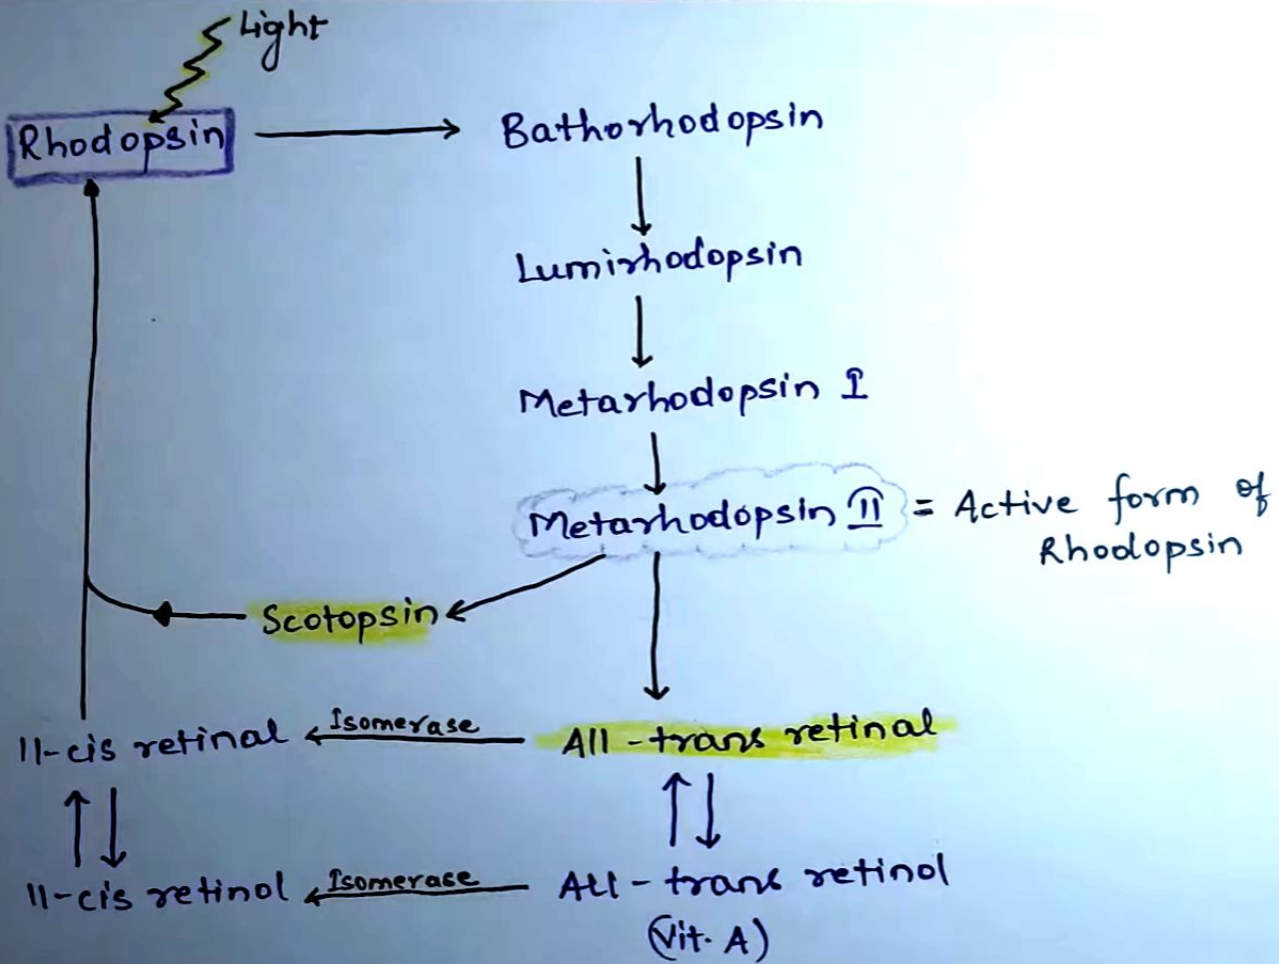 Light
Rhodopsin
Bathorhodopsin
Lumirhodopsin
Metarhodopsin I
Metarhodopsin II = Active form of
Rhodopsin
Scotopsin
11-cis retinal Isomerase All-trans retinal
11-cis retinol Isomerase All-trans retinol
(Vit. A)